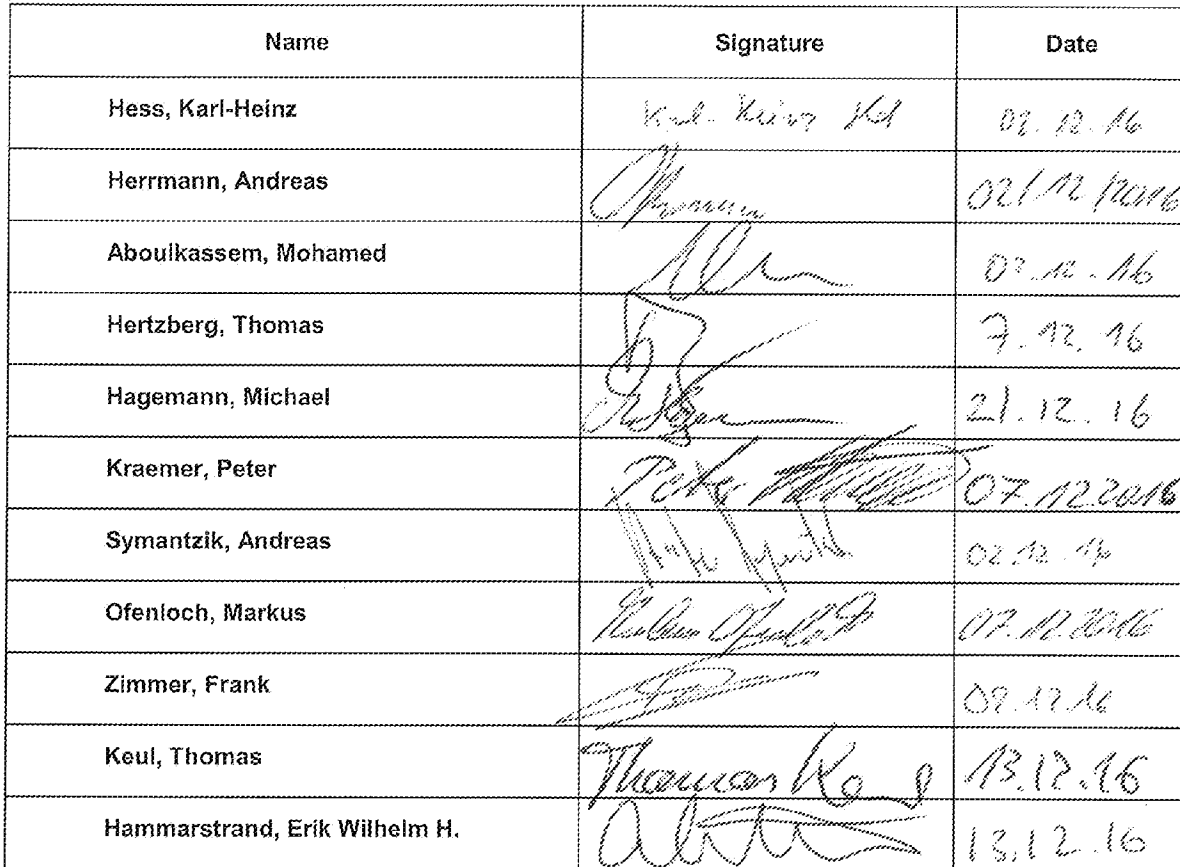 Name Signature Date
Hess, Karl-Heinz Karl-Heinz 02.12.16
Herrmann, Andreas 02/12/2016
Aboulkassem, Mohamed 02.12.16
Hertzberg, Thomas 7.12.16
Hagemann, Michael 21.12.16
Kraemer, Peter Peter 07.12.2016
Symantzik, Andreas 02.12.16
Ofenloch, Markus Markus Ofenloch 07.12.2016
Zimmer, Frank 09.12.16
Keul, Thomas Thomas Keul 13.12.16
Hammarstrand, Erik Wilhelm H. 13.12.16